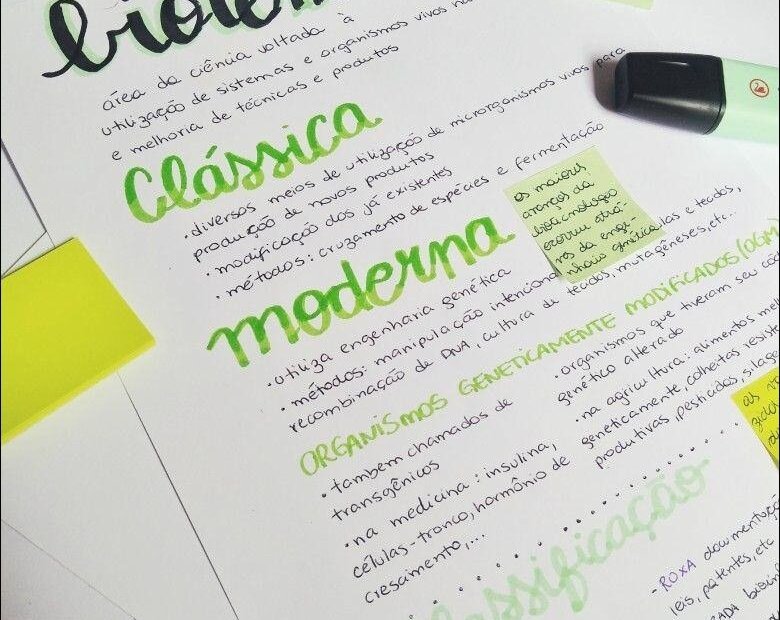 área da ciência voltada à
utilização de sistemas e organismos vivos na
e melhoria de técnicas e produtos
Clássica
• diversos meios de utilização de microrganismos vivos para
produção de novos produtos
• modificação dos já existentes
• métodos: cruzamento de espécies e fermentação
os maiores
avanços da
biotecnologia
ocorreu atra-
ves da enge-
nharia genética
moderna
• utiliza engenharia genética
• métodos: manipulação intencional células e tecidos,
recombinação de DNA, cultura de tecidos, mutagêneses, etc...
ORGANISMOS GENETICAMENTE MODIFICADOS (OGM
• também chamados de
transgênicos
• na medicina: insulina,
células-tronco, hormônio de
cresamento,...
• organismos que tiveram seu cód
genético alterado
• na agricultura: alimentos
geneticamente, colheitas
produtivas, pesticidas,
as
classificação
- ROXA documentos
leis, patentes, etc